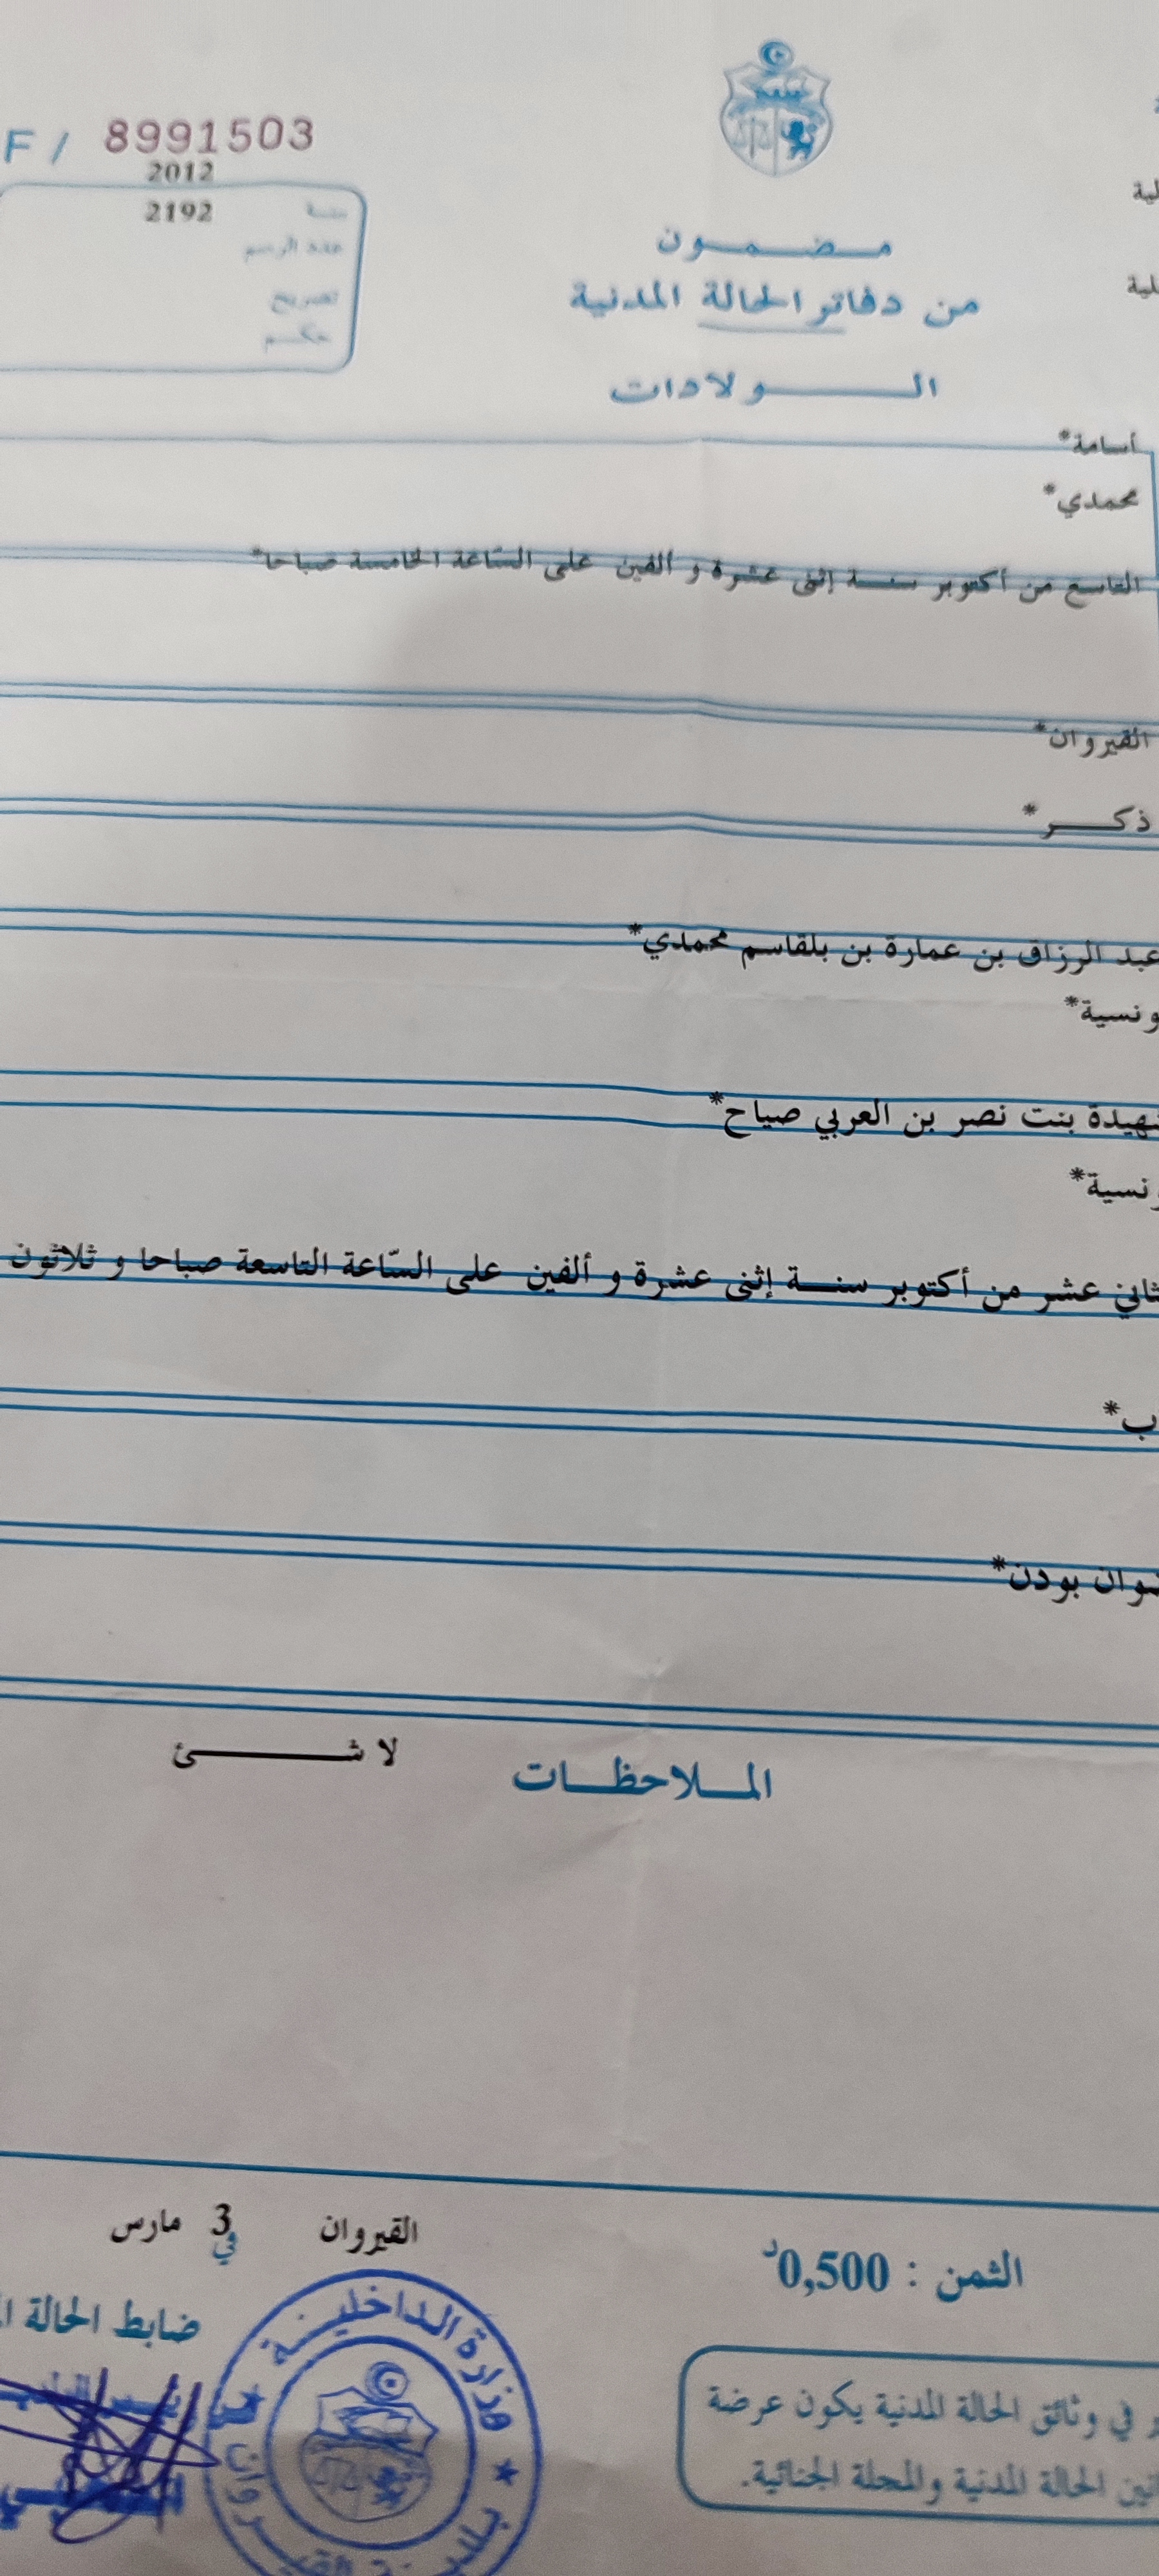 F / 8991503
2012
سنة 2192
عدد الرسم
تصريح
حكم
مضمون
من دفاتر الحالة المدنية
الولادات
أسامة*
محمدي*
التاسع من أكتوبر سنة إثنى عشرة و ألفين على السّاعة الخامسة صباحا*
القيروان*
ذكر*
عبد الرزاق بن عمارة بن بلقاسم محمدي*
ونسية*
هيدة بنت نصر بن العربي صياح*
ونسية*
ثاني عشر من أكتوبر سنة إثنى عشرة و ألفين على السّاعة التاسعة صباحا و ثلاثون
ب*
وان بودن*
الملاحظات لا شئ
القيروان في 3 مارس
الثمن : 0,500د
ضابط الحالة
وزارة الداخلية
بلدية القيروان
ر في وثائق الحالة المدنية يكون عرضة
انين الحالة المدنية والمجلة الجنائية.